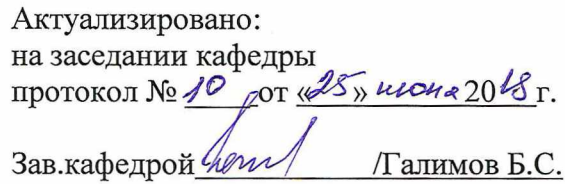 Актуализировано:
на заседании кафедры
протокол № 10 от «25» июня 2018 г.
Зав.кафедрой /Галимов Б.С.